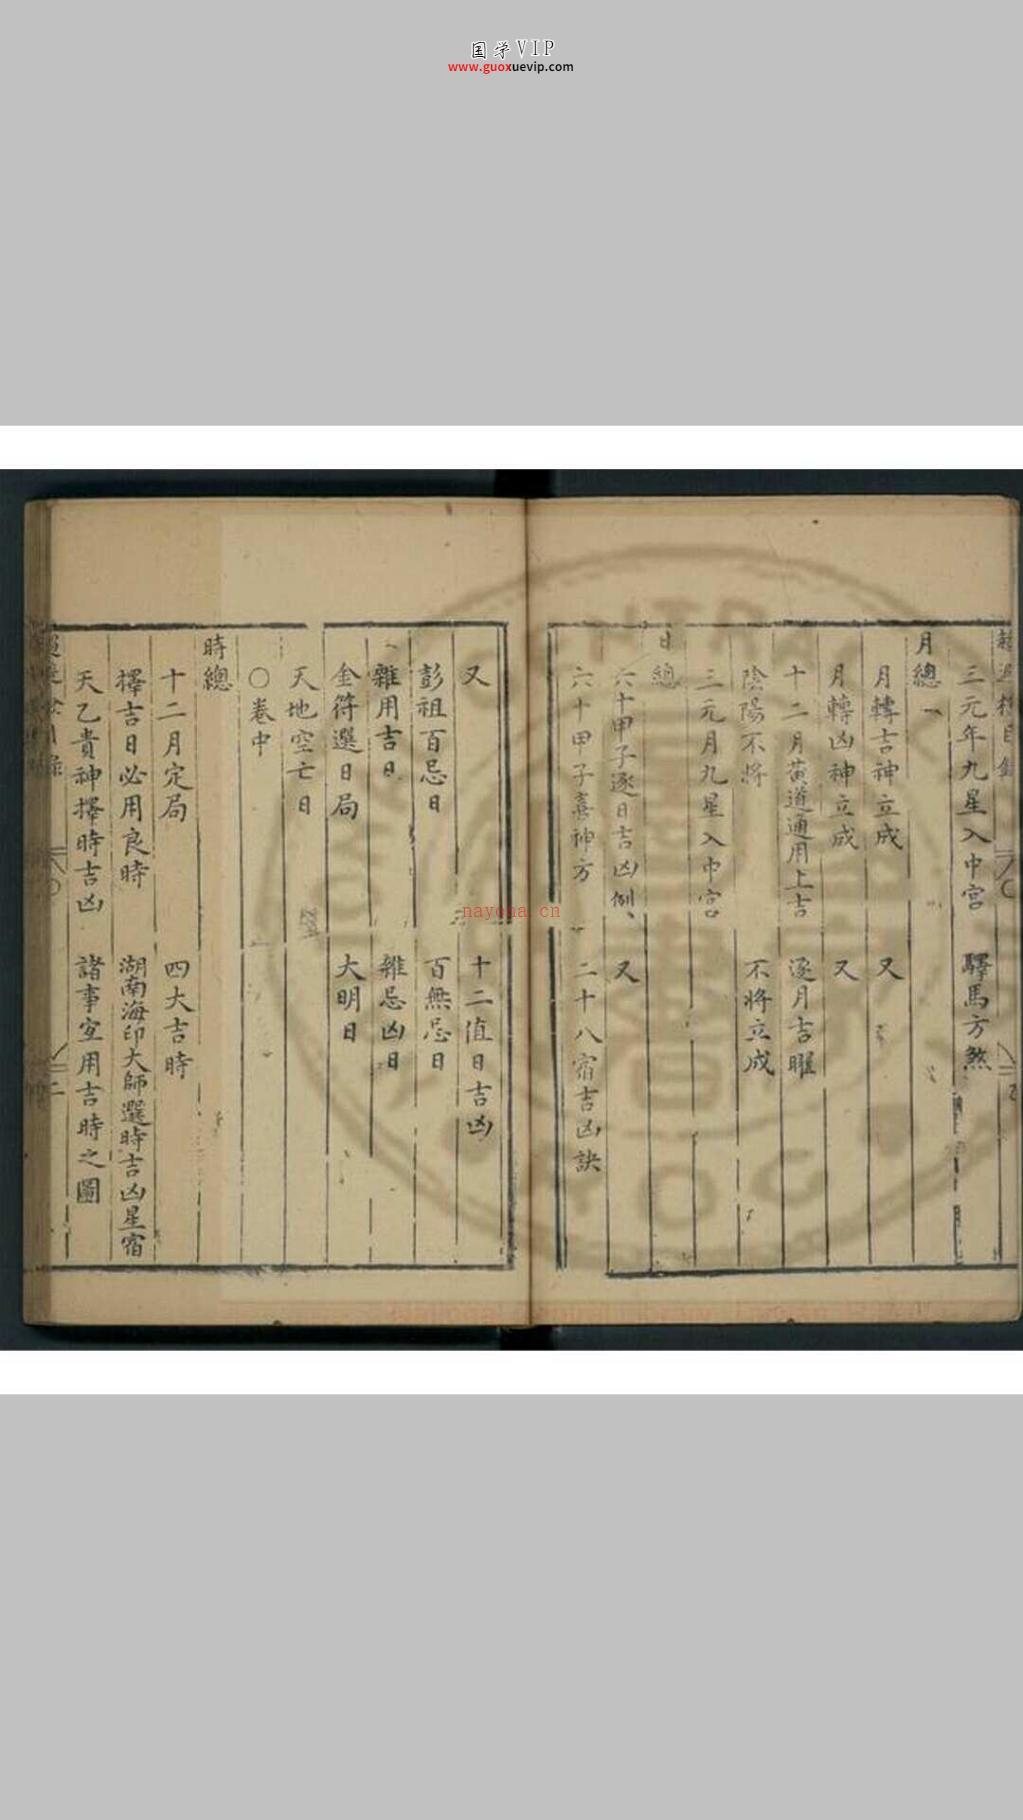 国学VIP
www.guoxuevip.com
三元年九星入中宮　驛馬方煞
月總
月轉吉神立成　又
月轉凶神立成　又
十二月黃道通用上吉　逐月吉曜
陰陽不將　不將立成
三元月九星入中宮
日總
六十甲子逐日吉凶例　又
六十甲子喜神方　二十八宿吉凶訣
又　十二值日吉凶
彭祖百忌日　百無忌日
雜用吉日　雜忌凶日
金符選日局　大明日
天地空亡日
○卷中
時總
十二月定局　四大吉時
擇吉日必用良時　湖南海印大師選時吉凶星宿
天乙貴神擇時吉凶　諸事宜用吉時之圖
nayona.cn